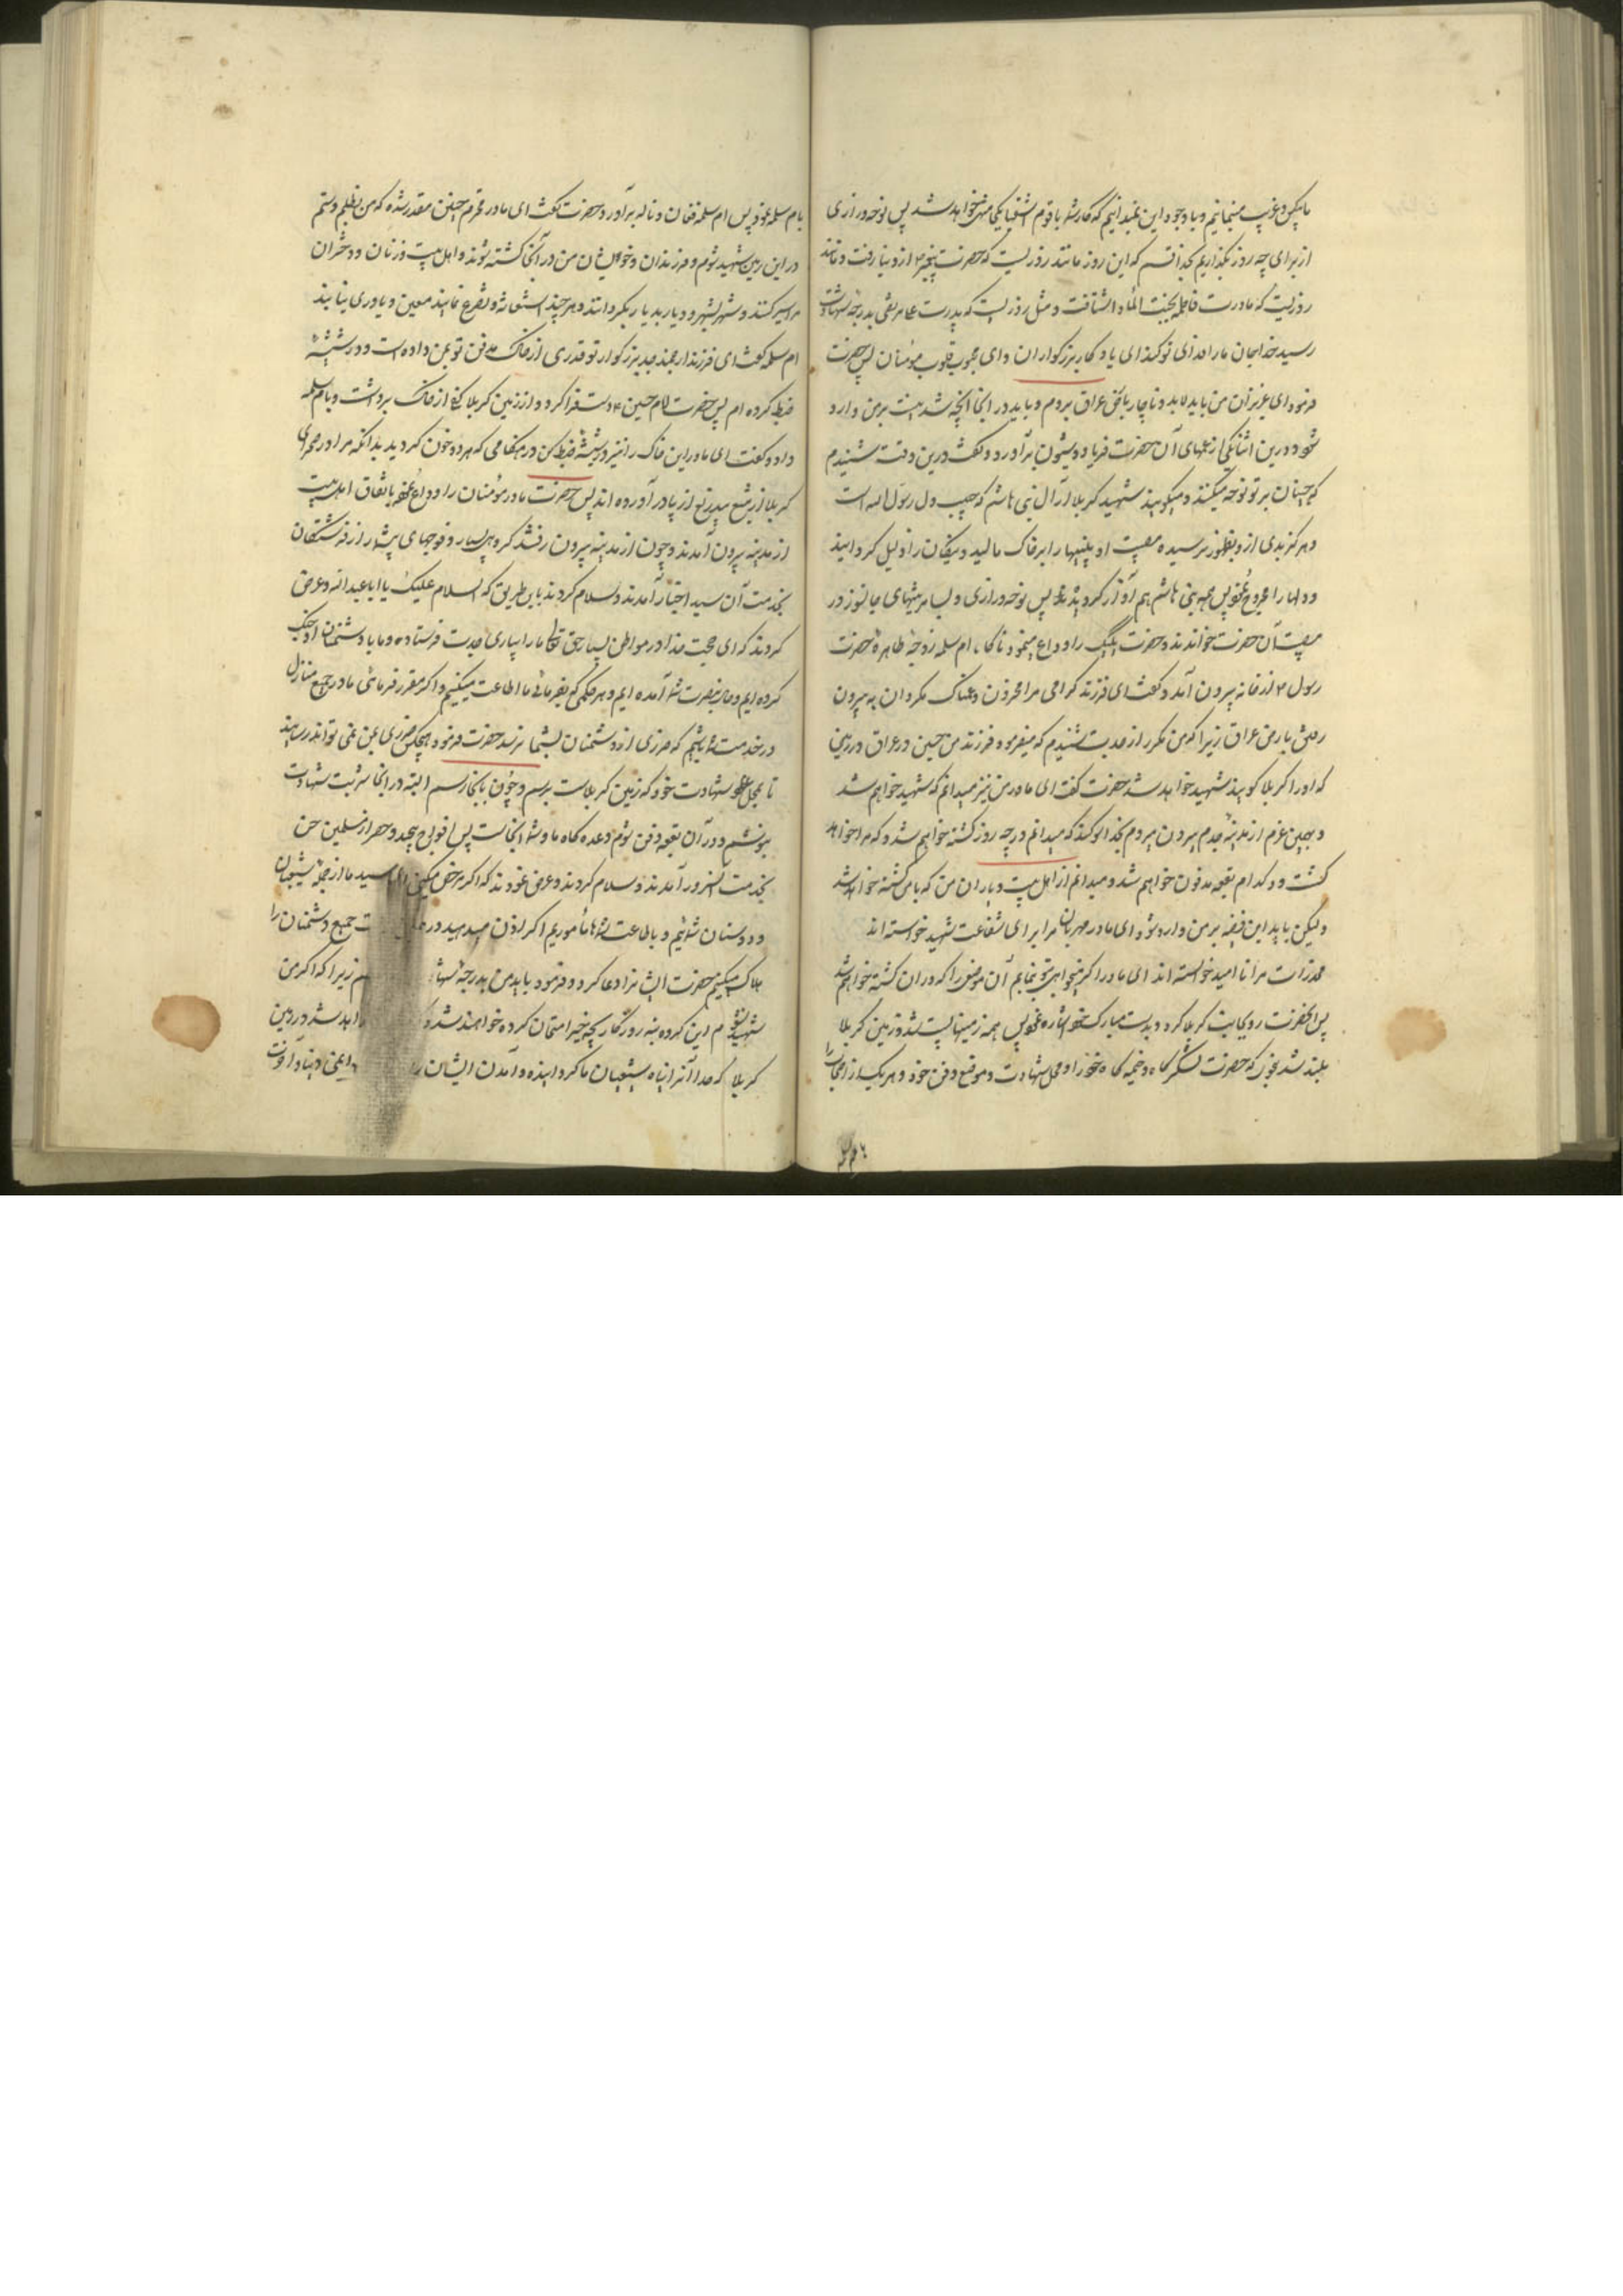 از برای چه روز بگذاریم بخدا قسم که این روز مانند روزیست که حضرت پیغمبر ازدنیا رفت و مانند
روزیست که مادرت فاطمه بجنت الماوا شتافت و مثل روزیست که پدرت علی مرتضی بدرجه شهادت
رسید خدا جان ما را فدای تو کند ای یادگار بزرگواران و ای محبوب قلوب مؤمنان پس حضرت
فرمود ای عزیزان من باید لابد و ناچار بارض عراق بروم و باید در آنجا آنچه شدنیست بر من وارد
شود درین اثنا یکی از عمهای آن حضرت فریاد و شیون برآورد و گفت درین وقت شنیدم
که جنیان بر تو نوحه میکنند و میگویند شهید کربلا از آل بنی هاشم که حبیب دل رسول الله است
و هرگز بدی از و بظهور نرسیده مصیبت او بینیها را بر خاک مالید و نیکان را ذلیل گردانید
مصیبت آن حضرت خواندند و حضرت یک یک را وداع مینمود ناگاه ام سلمه زوجه طاهره حضرت
رسول از خانه بیرون آمد و گفت ای فرزند گرامی مرا محزون و غمناک مگردان به بیرون
رفتن بارض عراق زیرا که من مکرر از جدت شنیدم که میفرمود فرزند من حسین در عراق در زمین
که او را کربلا گویند شهید خواهد شد حضرت گفت ای مادر من نیز میدانم که شهید خواهم شد
و بهمین عزم از مدینه جدم بیرون میروم بخدا سوگند که میدانم در چه روز کشته خواهم شد و که مرا خواهد
کشت و در کدام بقعه مدفون خواهم شد و میدانم از اهل بیت و یاران من که با من کشته خواهد شد
ولیکن باید این قضیه بر من وارد شود ای مادر مهربان مرا برای شفاعت شهید خواسته اند
ای مادر اگر میخواهی بتو بنمایم آن موضع را که در آن کشته خواهم شد
پس آنحضرت رو بجانب کربلا کرد و بدست مبارک خود اشاره نمود پس همه زمینها پست شد و زمین کربلا
بلند شد بنحوی که حضرت لشکرگاه و خیمه گاه خود را و محل شهادت و موقع دفن خود و هر یک از اصحاب را
بام سلمه نمود پس ام سلمه فغان و ناله برآورد حضرت گفت ای مادر محترم چنین مقدر شده که من بظلم و ستم
در این زمین شهید شوم و فرزندان و خویشان من در آنجا کشته شوند و اهل بیت و زنان و دختران
مرا اسیر کنند و شهر بشهر و دیار بدیار بگردانند و هر چند استغاثه و تضرع نمایند معین و یاوری نیابند
ام سلمه گفت ای فرزند ارجمند جد بزرگوار تو قدری از خاک مدفن تو بمن داده است و در شیشه
ضبط کرده ام پس حضرت امام حسین دست فرا کرد و از زمین کربلا کفی از خاک برداشت و بام سلمه
داد و گفت ای مادر این خاک را نیز در شیشه ضبط کن در هنگامی که هر دو خون گردید بدانکه مرا در صحرای
کربلا از تیغ بیدریغ از پا در آورده اند پس حضرت مادر مؤمنان را وداع نمود باتفاق اهل بیت
از مدینه بیرون آمدند و چون از مدینه بیرون رفتند گروهی بسیار و فوجهای بیشمار از فرشتگان
بخدمت آن سید اخیار آمدند و سلام کردند باین طریق که السلام علیک یا ابا عبد الله و عرض
کردند که ای حجت خدا در مواطن بسیار حق تعالی ما را بیاری جدت فرستاده و ما با دشمنان او جنگ
کرده ایم و حال بنصرت شما آمده ایم و هر حکمی که بفرمائی ما اطاعت میکنیم و اگر مقرر فرمائی ما در جمیع منازل
در خدمت شما باشیم که ضرری از دشمنان بشما نرسد حضرت فرمود هیچکس ضرری بمن نمی تواند رسانید
تا بمحل شهادت خود که زمین کربلاست برسم و چون بآنجا رسم البته در آنجا شربت شهادت
بنوشم و در آن بقعه دفن شوم وعده گاه ما و شما آنجاست پس افواج بیحد و حصر از مسلمین جن
بخدمت آنسرور آمدند و سلام کردند و عرض نمودند که اگر مرخص میکنی سید ما از جمله شیعیان
و دوستان شمائیم و باطاعت شما مأموریم اگر اذن میدهید جمیع دشمنان را
هلاک میکنیم حضرت ایشانرا دعا کرد و فرمود باید من بدرجه زیرا که اگر من
شهید نشوم این گروه به روزگار بچه چیز امتحان کرده خواهند شد در زمین
کربلا که خدا آنرا پناه شیعیان ما گردانیده و آمدن ایشان دنیا و آخرت